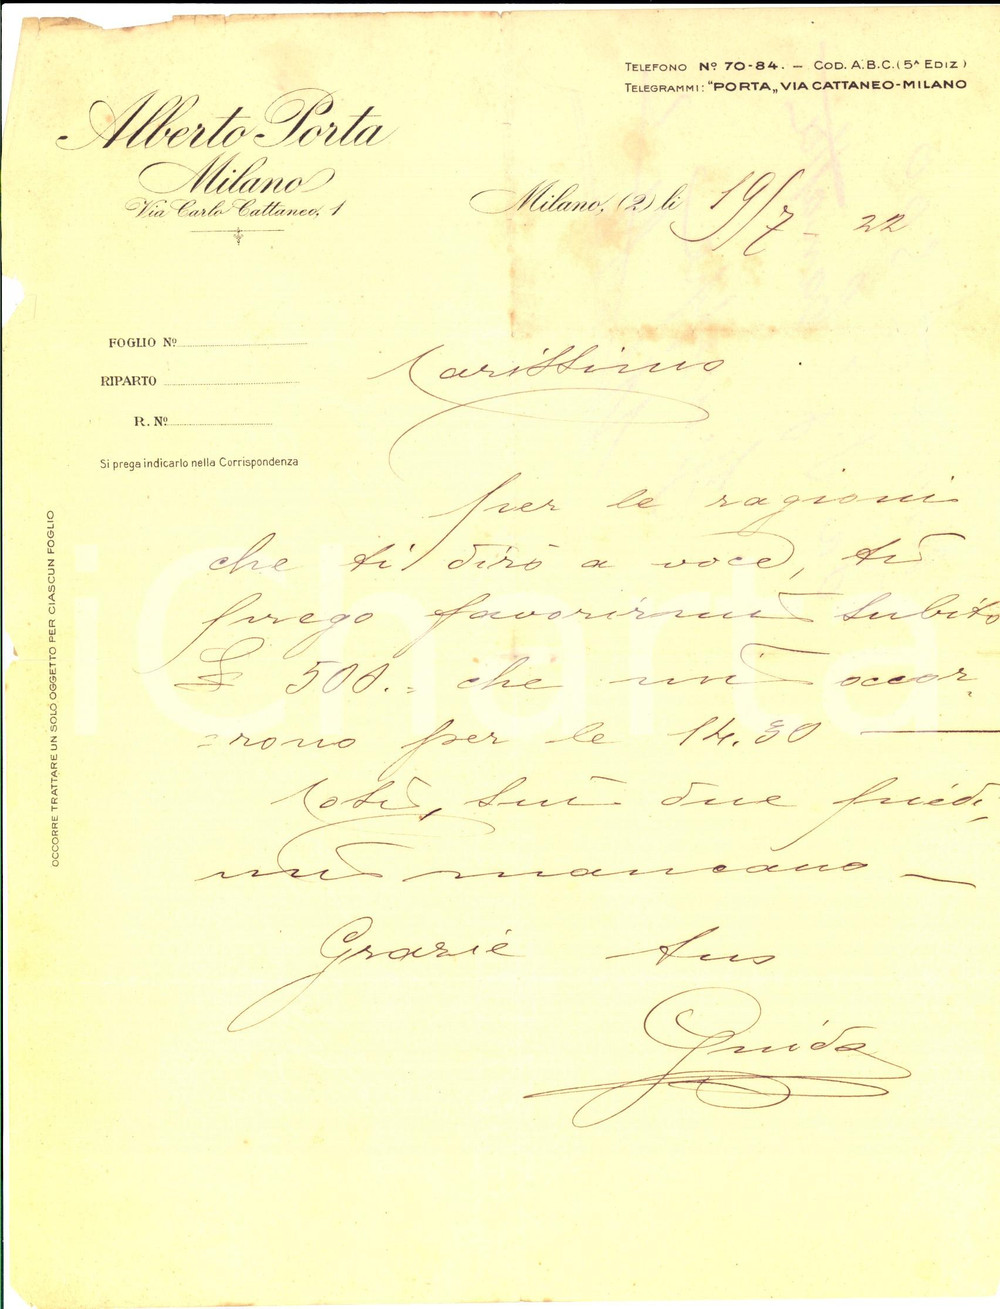 Alberto Porta
Milano
Via Carlo Cattaneo, 1
TELEFONO Nº 70-84. - COD. A.B.C. (5ª EDIZ)
TELEGRAMMI: "PORTA„ VIA CATTANEO-MILANO
Milano, (2) li 19/7 - 22
FOGLIO Nº
RIPARTO
R. Nº
Si prega indicarlo nella Corrispondenza
OCCORRE TRATTARE UN SOLO OGGETTO PER CIASCUN FOGLIO
Carissimo
per le ragioni
che ti dirò a voce, ti
prego favorirmi subito
£ 500.= che mi occor
=rono per le 14.30
Così, sui due piedi,
mi mancano
Grazie tuo
Guido
iCharta